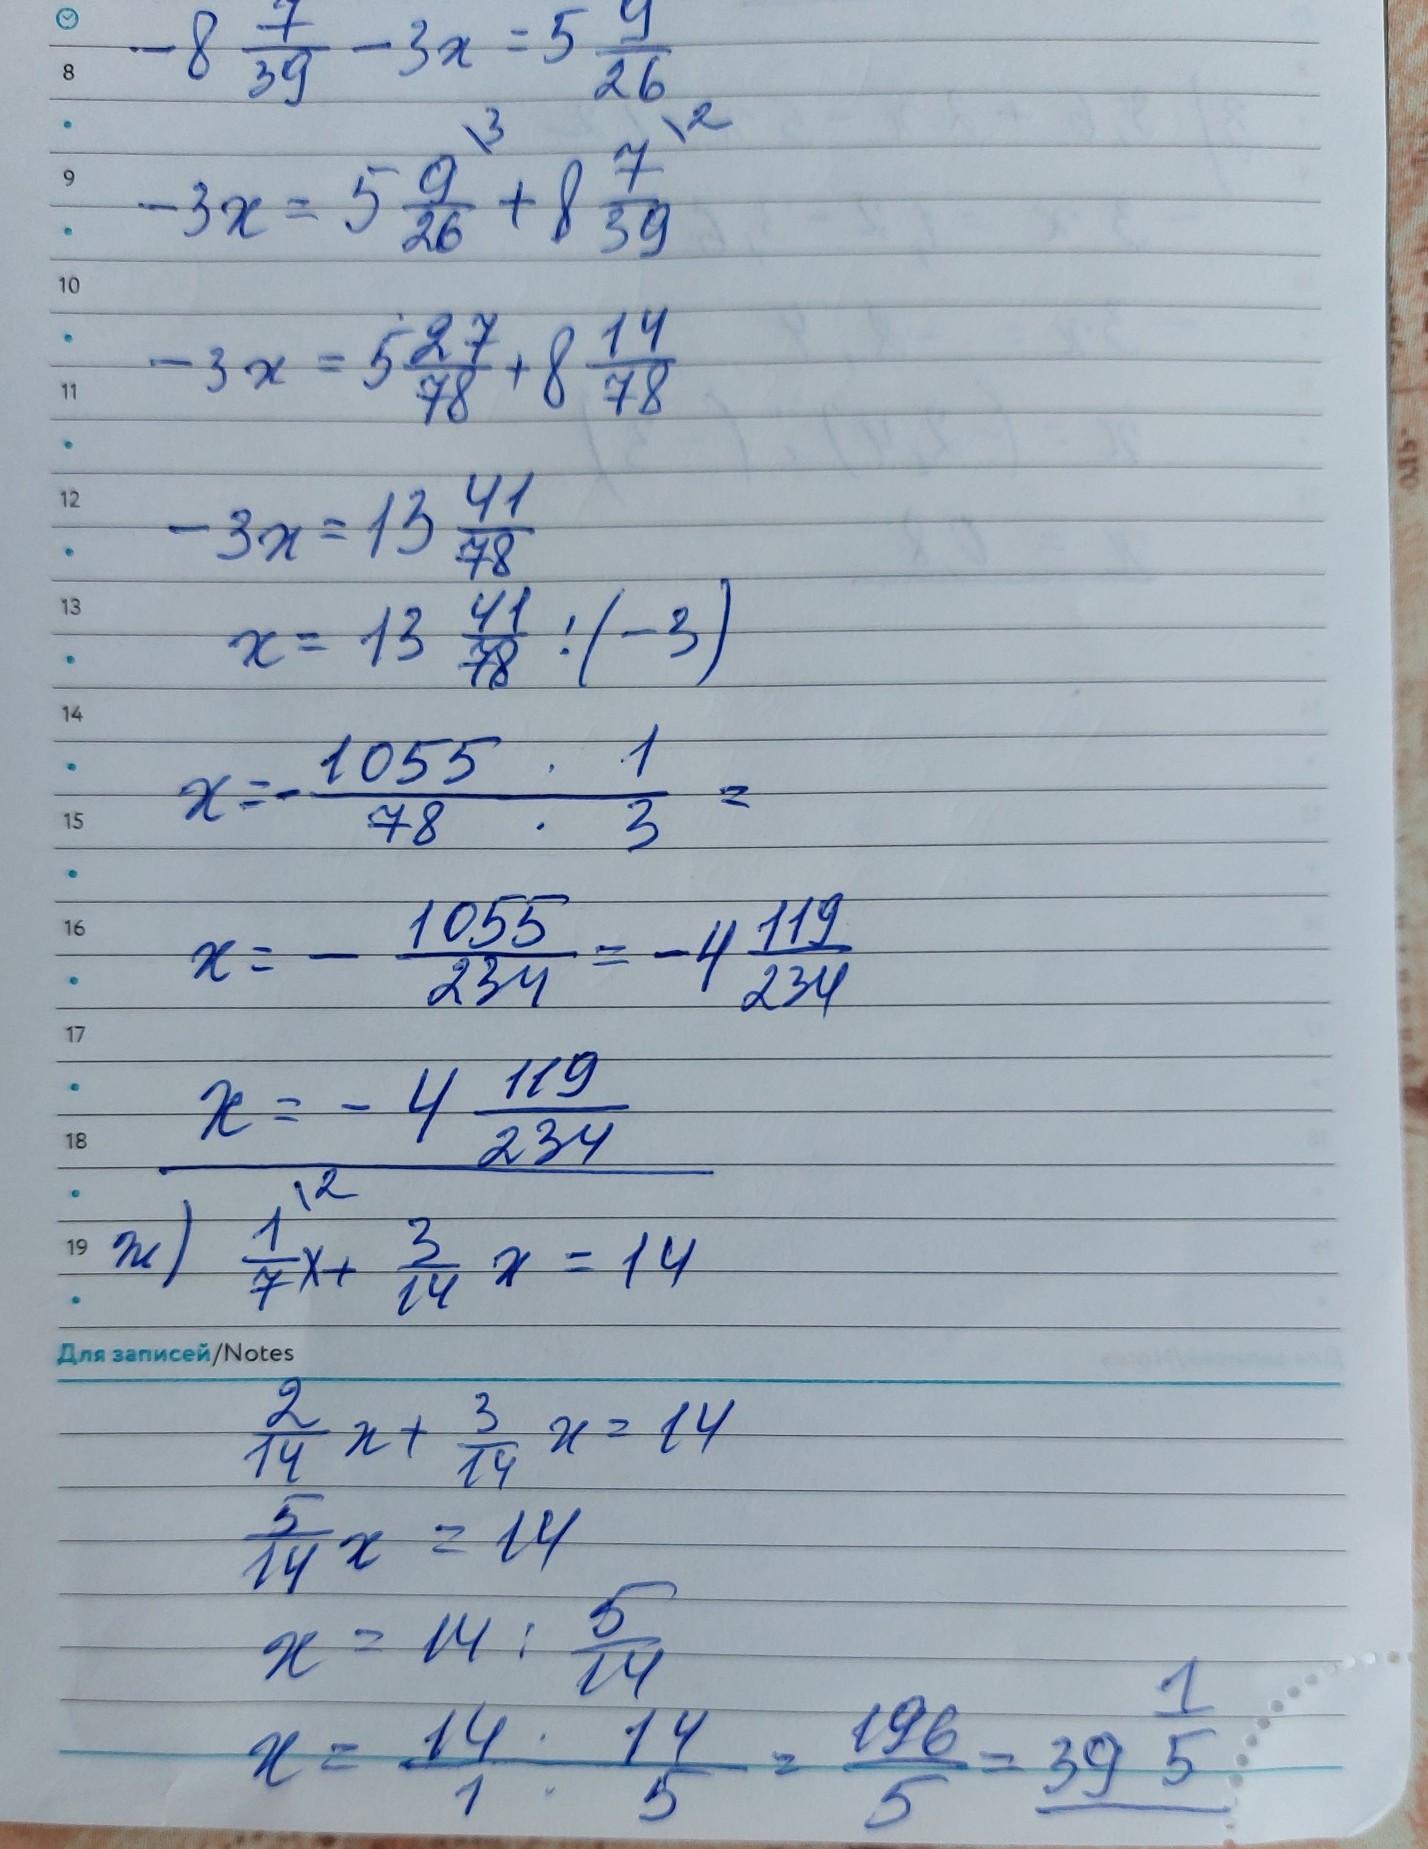 8
-8 7/39 - 3x = 5 9/26
9
-3x = 5 9/26 \3 + 8 7/39 \2
10
11
-3x = 5 27/78 + 8 14/78
12
-3x = 13 41/78
13
x = 13 41/78 : (-3)
14
15
x = - 1055 · 1 / 78 · 3 =
16
x = - 1055/234 = -4 119/234
17
18
x = -4 119/234
19
ж) 1/7 \2 x + 3/14 x = 14
Для записей/Notes
2/14 x + 3/14 x = 14
5/14 x = 14
x = 14 : 5/14
x = 14 · 14 / 1 · 5 = 196/5 = 39 1/5